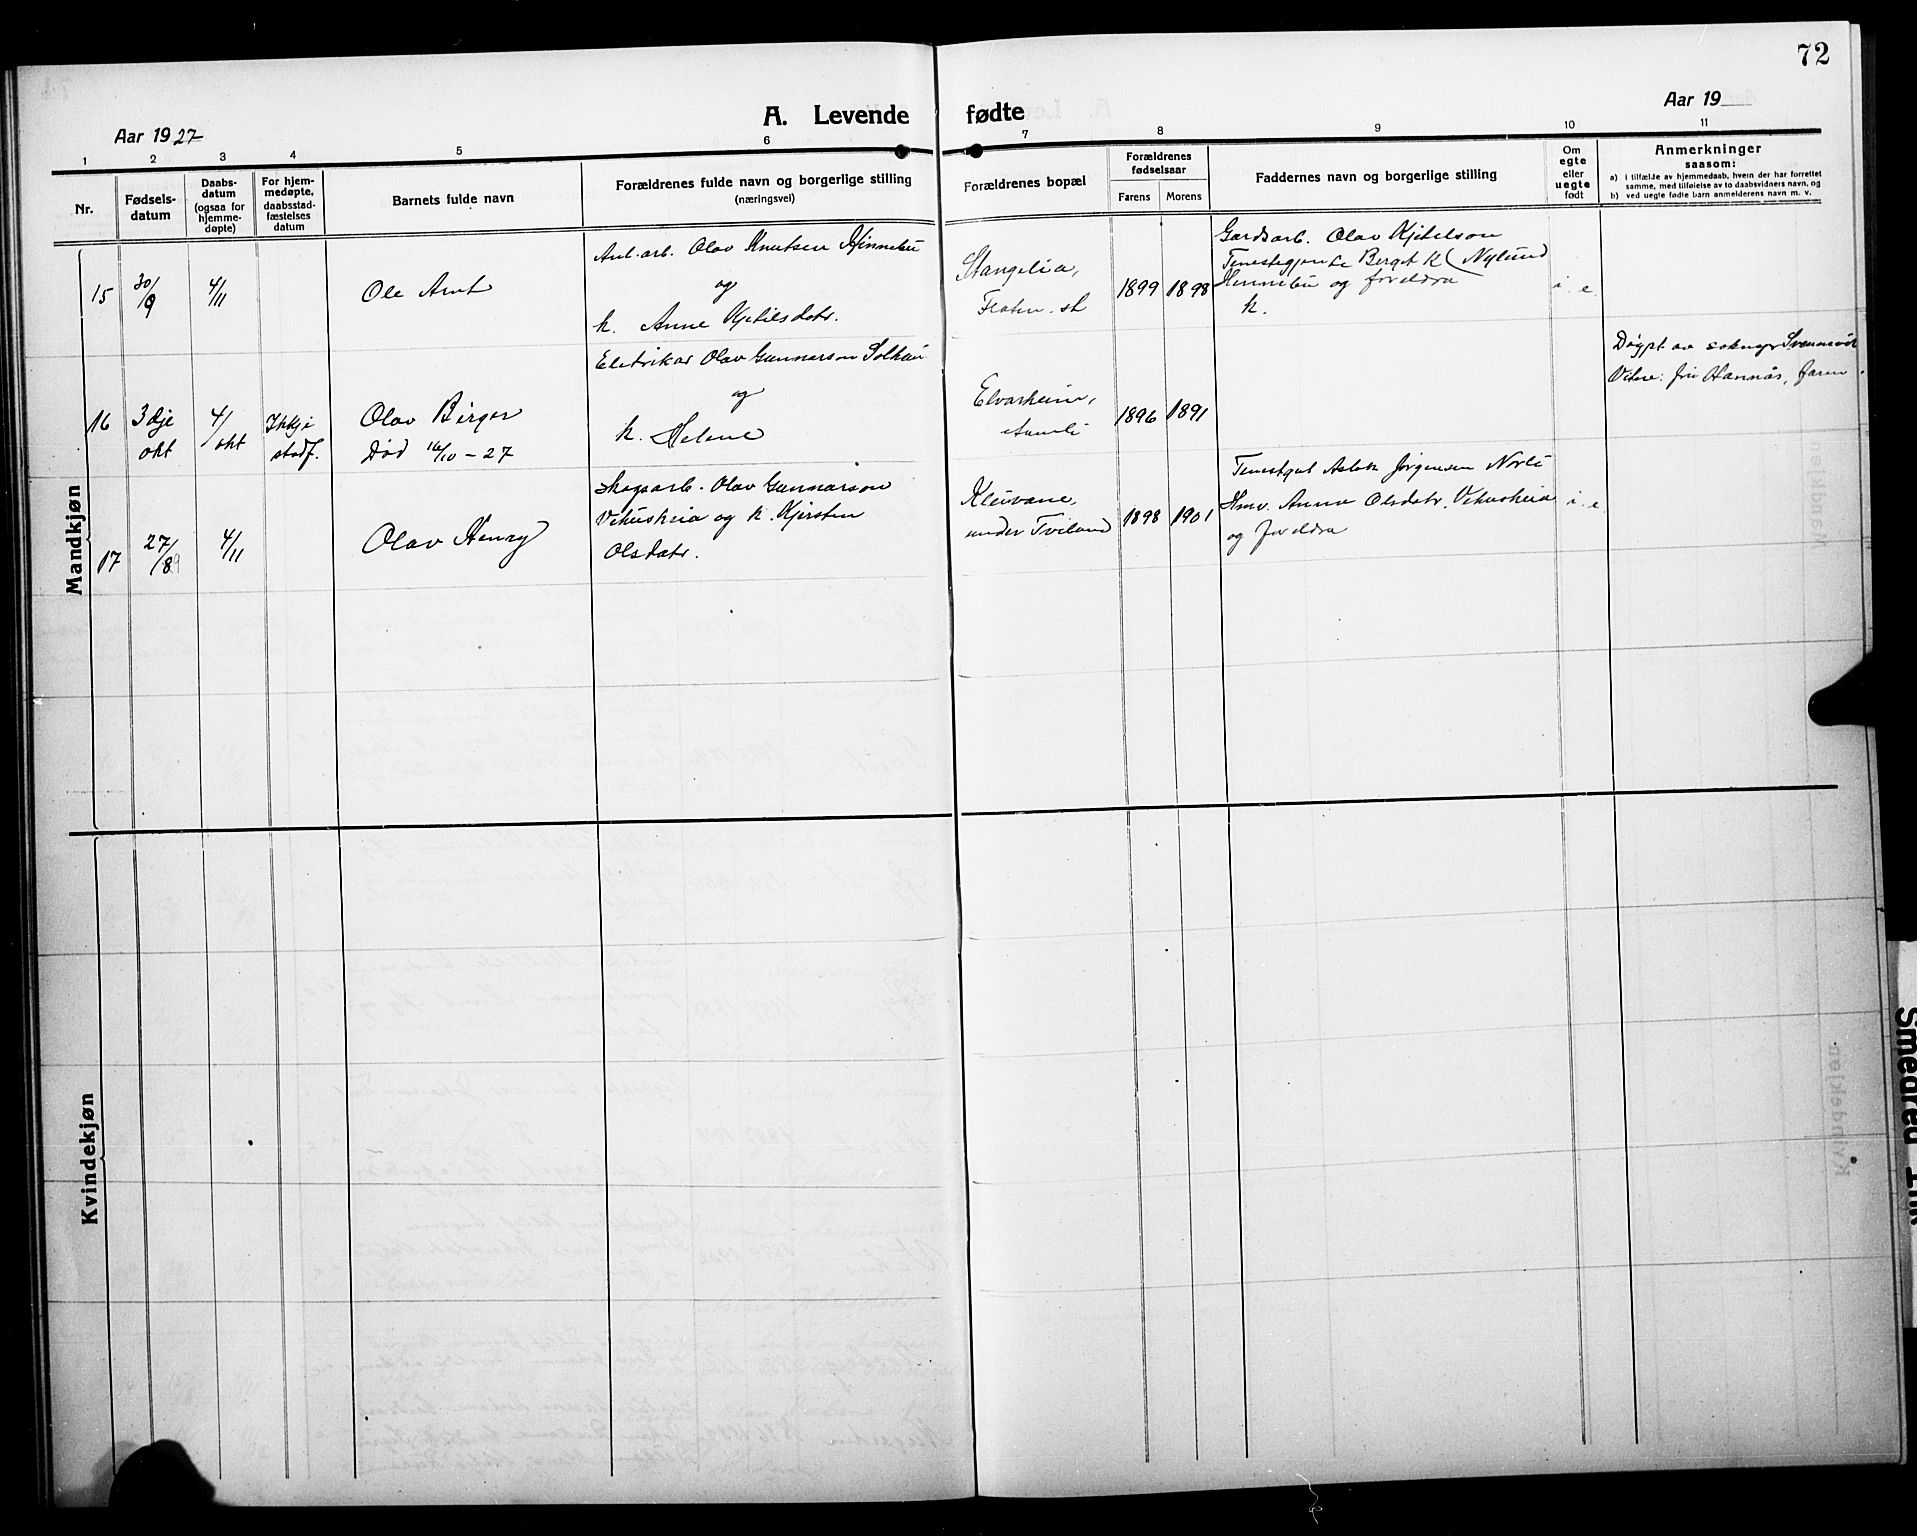 72
A. Levende fødte
Aar 1927
Aar 19
1 2 3 4 5 6 7 8 9 10 11
Nr.
Fødsels-
datum
Daabs-
datum
(ogsaa for
hjemme-
døpte)
For hjem-
medøpte,
daabsstad-
fæstelses
datum
Barnets fulde navn
Forældrenes fulde navn og borgerlige stilling
(næringsvei)
Forældrenes bopæl
Forældrenes
fødselsaar
Farens Morens
Faddernes navn og borgerlige stilling
Om
egte
eller
uegte
født
Anmerkninger
saasom:
a) i tilfælde av hjemmedaab, hvem der har forrettet
samme, med tilføielse av to daabsvidners navn, og
b) ved uegte fødte barn anmelderens navn m. v.
Mandkjøn
15
30/9
4/11
Ole Arnt
Anl. arb. Olav Knutsen Hinnebu
og
k. Anne Kjetilsdatr.
Stangelia,
1899 1898
Gardsarb. Olav Kjetilson
Tenestegjente Berget K (Nylund
Hinnebu og foreldra
k.
i. e.
16
3dje
okt
4/
okt
Ikkje
stadf.
Olav Birger
Død 16/10 - 27
Eletrikar Olav Gunnarson Solhau
og
k. Helene
Elvarheim,
Aamli
1896 1891
Døypt av sokneprSvennevik
Vitne: fru Hannås, faren.
17
27/8
4/11
Olav Henry
Skogsarb. Olav Gunnarson
Vehusheia og k. Kjersten
Olsdatr.
Kleivane,
under Tveiland
1898 1901
Tenestgut Aslak Jørgensen Norli
Hmv. Anna Olsdatr. Vehusheia
og foreldra
i. e
Kvindekjøn
Smeared Ink